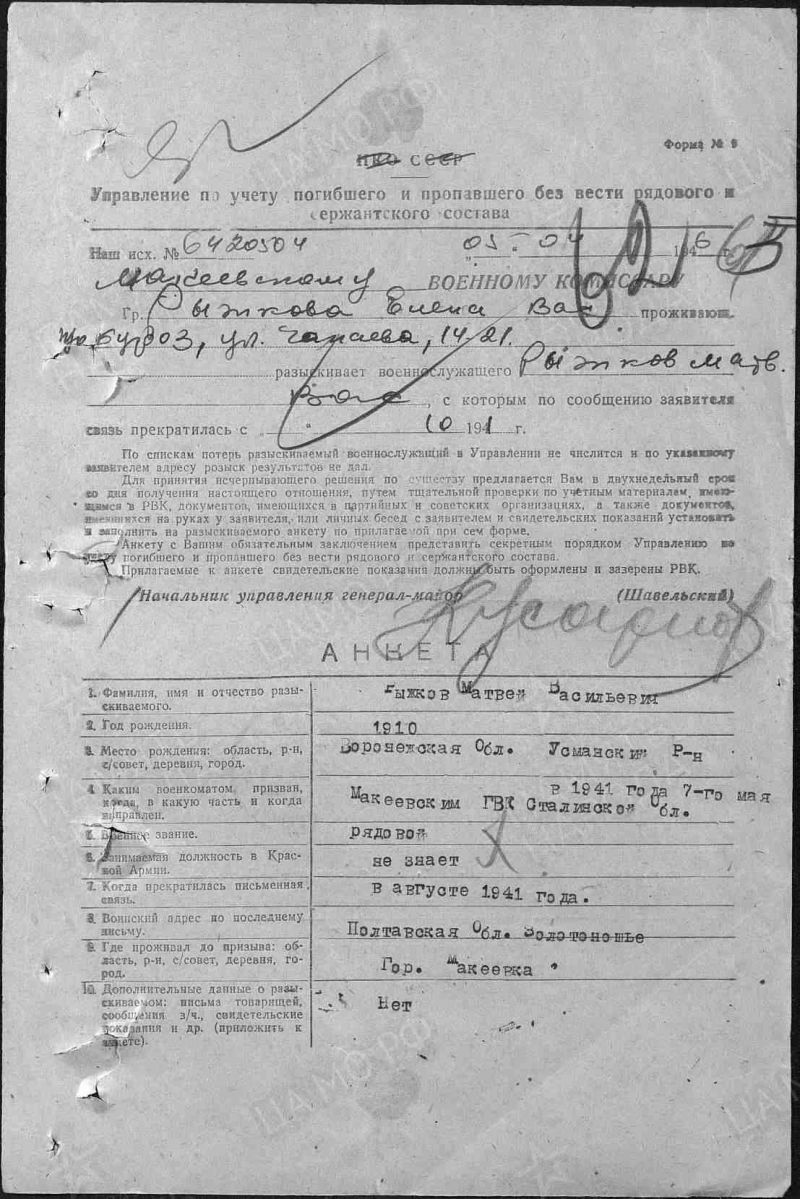 Форма № 9
НКО СССР
Управление по учету погибшего и пропавшего без вести рядового и
сержантского состава
Наш исх. № 6420504 „05“ 04 1946 г.
Макеевскому ВОЕННОМУ КОМИССАРУ
Гр. Рыжкова Елена Вас проживающ.
ул. Чапаева, 14/21.
разыскивает военнослужащего Рыжков Матв.
Вас, с которым по сообщению заявителя
связь прекратилась с „ “ 10 1941 г.
По спискам потерь разыскиваемый военнослужащий в Управлении не числится и по указанному
заявителем адресу розыск результатов не дал.
Для принятия исчерпывающего решения по существу предлагается Вам в двухнедельный срок
со дня получения настоящего отношения, путем тщательной проверки по учетным материалам, имею-
щимся в РВК, документов, имеющихся в партийных и советских организациях, а также документов,
имеющихся на руках у заявителя, или личных бесед с заявителем и свидетельских показаний установить
и заполнить на разыскиваемого анкету по прилагаемой при сем форме.
Анкету с Вашим обязательным заключением представить секретным порядком Управлению по
учету погибшего и пропавшего без вести рядового и сержантского состава.
Прилагаемые к анкете свидетельские показания должны быть оформлены и заверены РВК.
Начальник управления генерал-майор (Шавельский)
АНКЕТА
1. Фамилия, имя и отчество разы-
скиваемого.
Рыжков Матвей Васильевич
2. Год рождения.
1910
3. Место рождения: область, р-н,
с/совет, деревня, город.
Воронежская Обл. Усманский Р-н
4. Каким военкоматом призван,
когда, в какую часть и когда
направлен.
в 1941 года 7-го мая
Макеевским ГВК Сталинской Обл.
5. Военное звание.
рядовой
6. Занимаемая должность в Крас-
ной Армии.
не знает
7. Когда прекратилась письменная
связь.
в августе 1941 года.
8. Воинский адрес по последнему
письму.
Полтавская Обл. Золотоношье
9. Где проживал до призыва: об-
ласть, р-н, с/совет, деревня, го-
род.
Гор. Макеевка
10. Дополнительные данные о разы-
скиваемом: письма товарищей,
сообщения в/ч., свидетельские
показания и др. (приложить к
анкете).
Нет
ЦАМО РФ